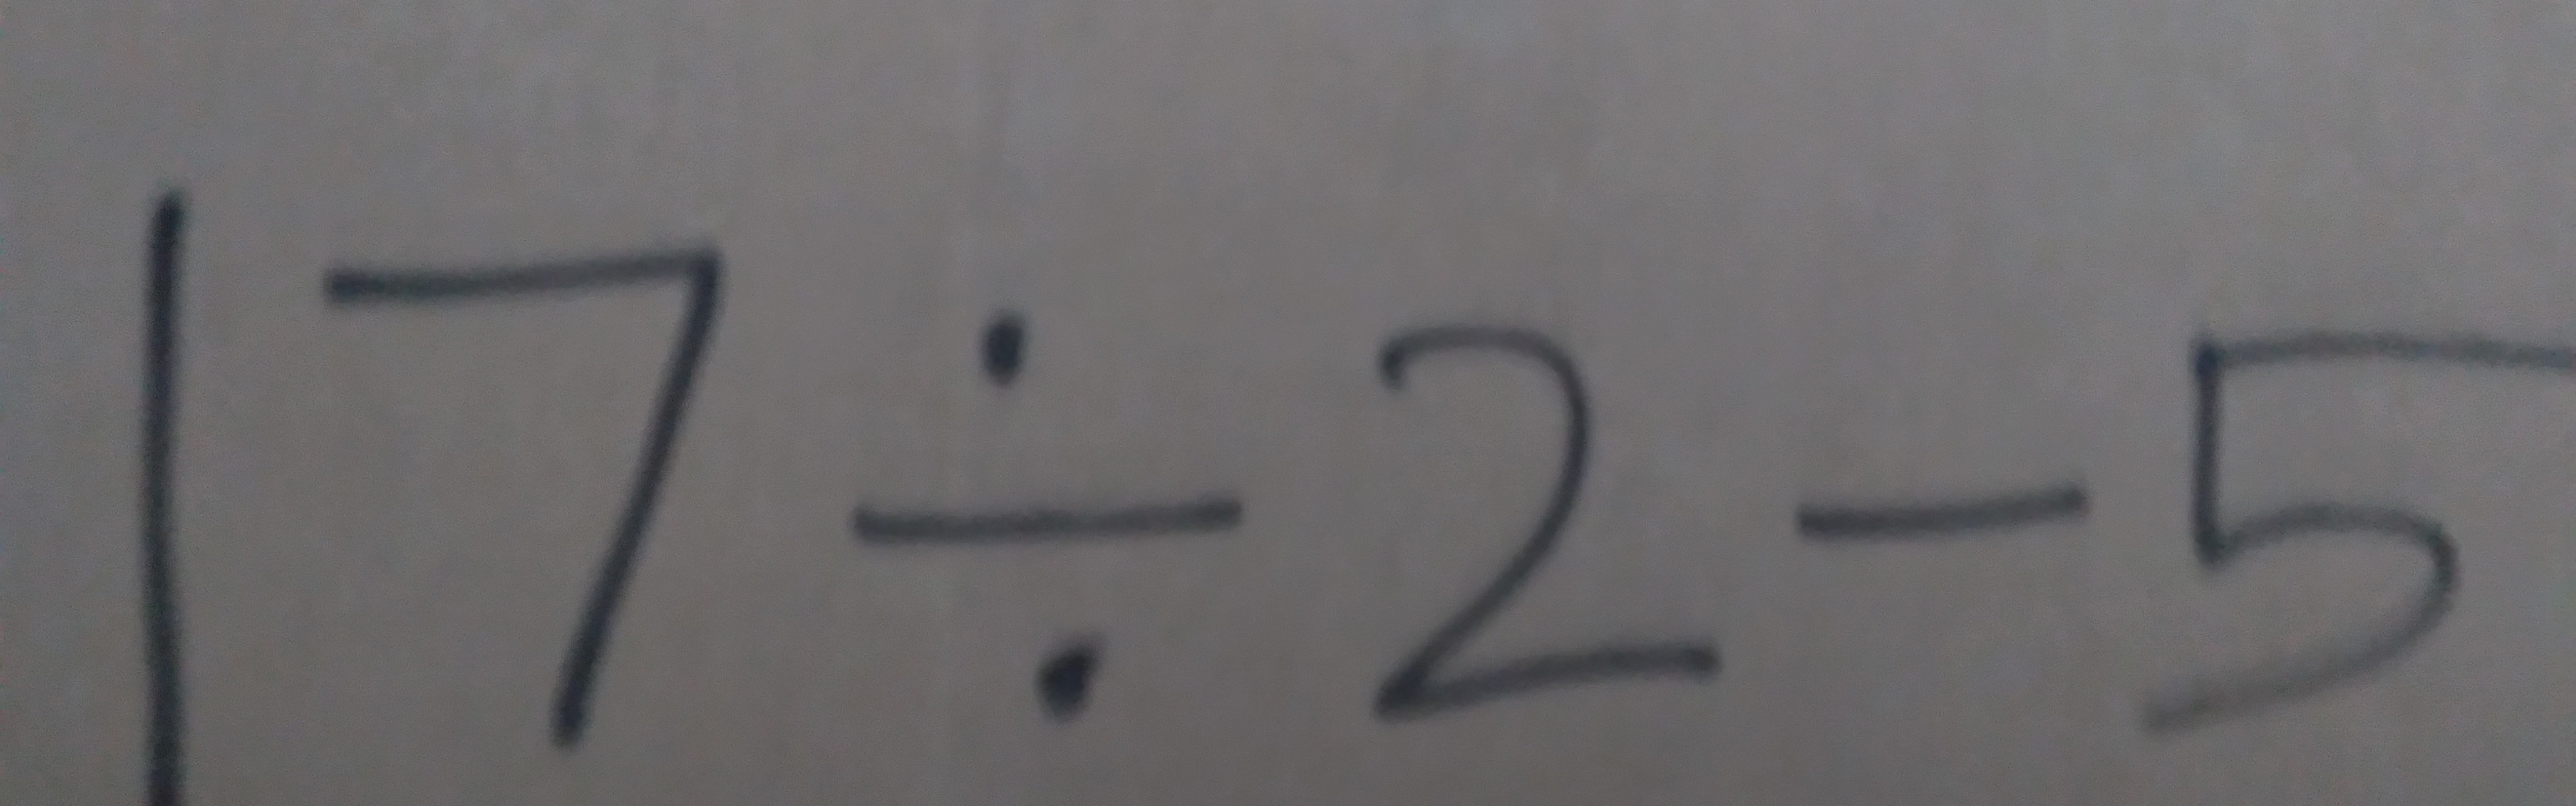 17÷2-5